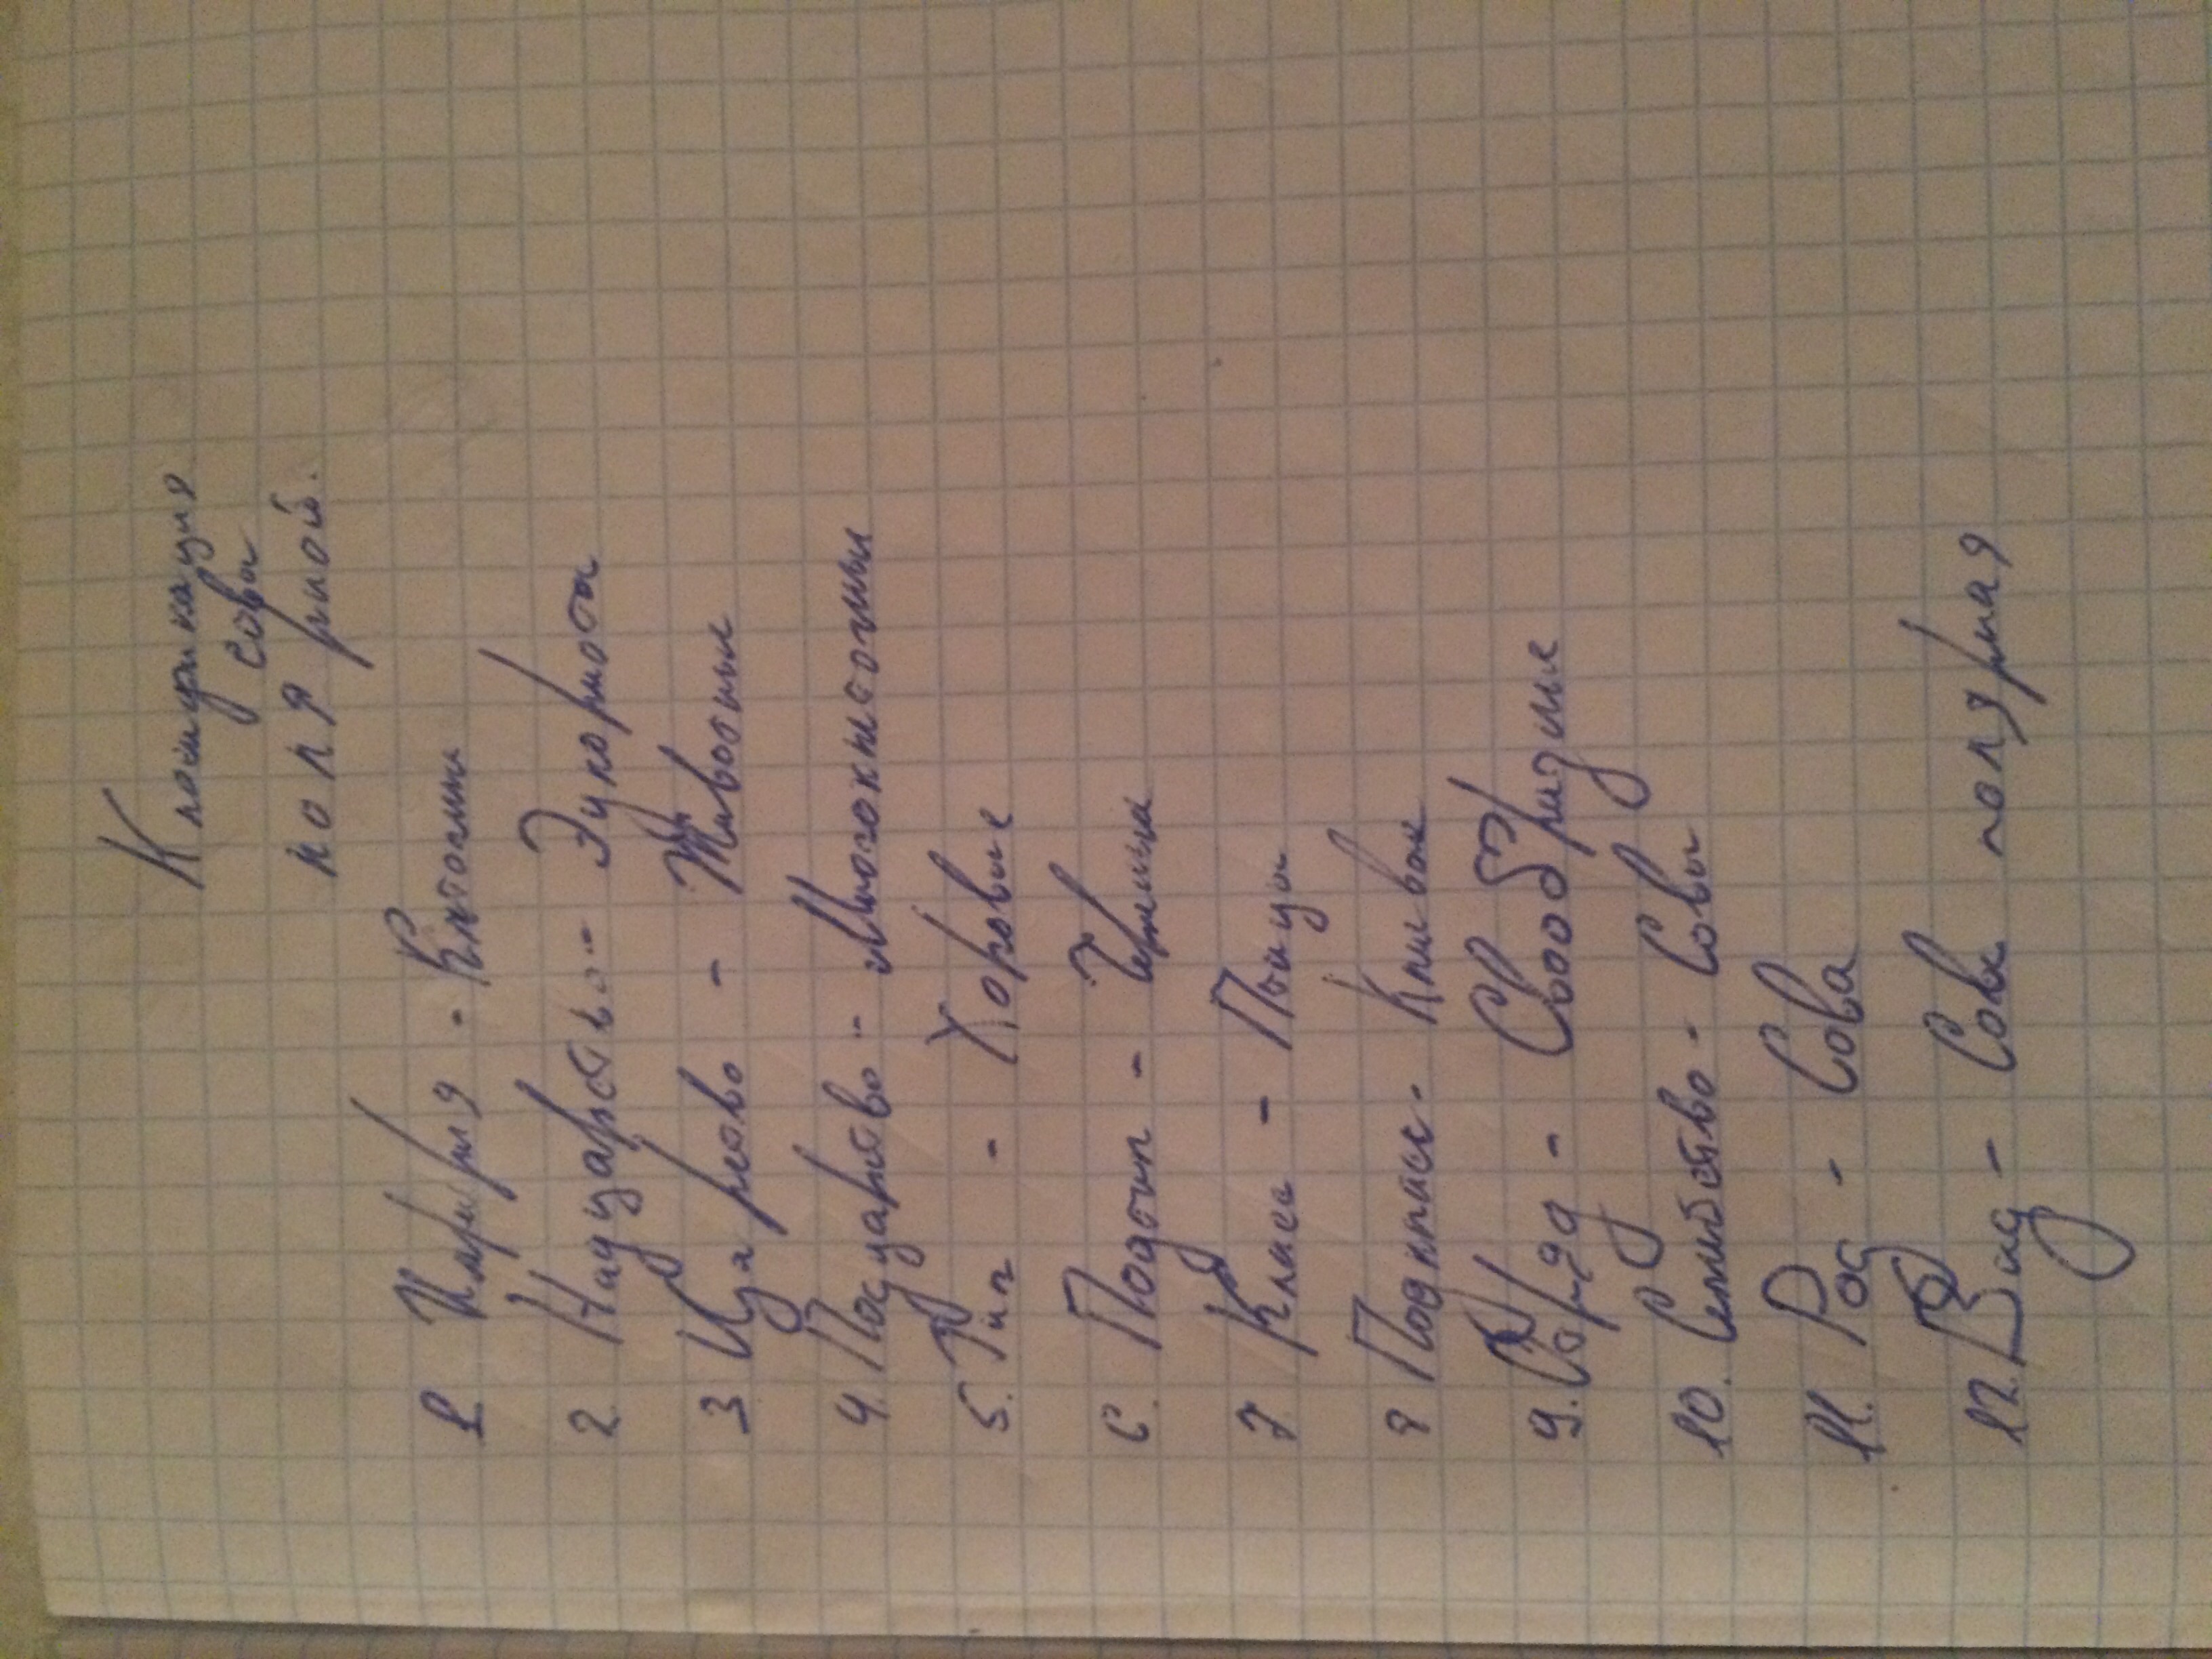 Классификация
совы
полярной.
1. Империя - Клеточные
2. Надцарство - Эукориоты
3 Царство - Животные
4. Подцарство - Многоклеточные
5. Тип - Хордовые
6. Подтип - Черепные
7. Класс - Птицы
8 Подкласс -
9. Отряд - Совообразные
10. Семейство - Совы
11. Род - Сова
12. Вид - Сова полярная